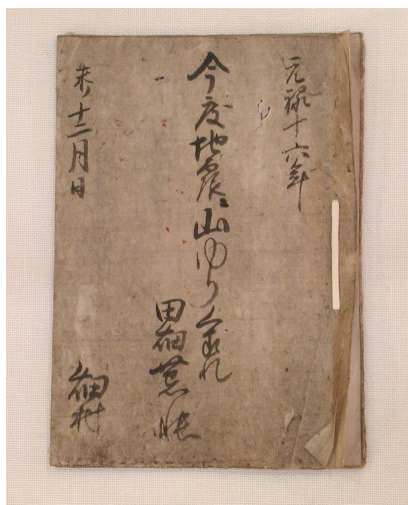 元禄十六年
今度地震ニ山ゆりく
田畑荒帳
未ノ十二月日
畑村